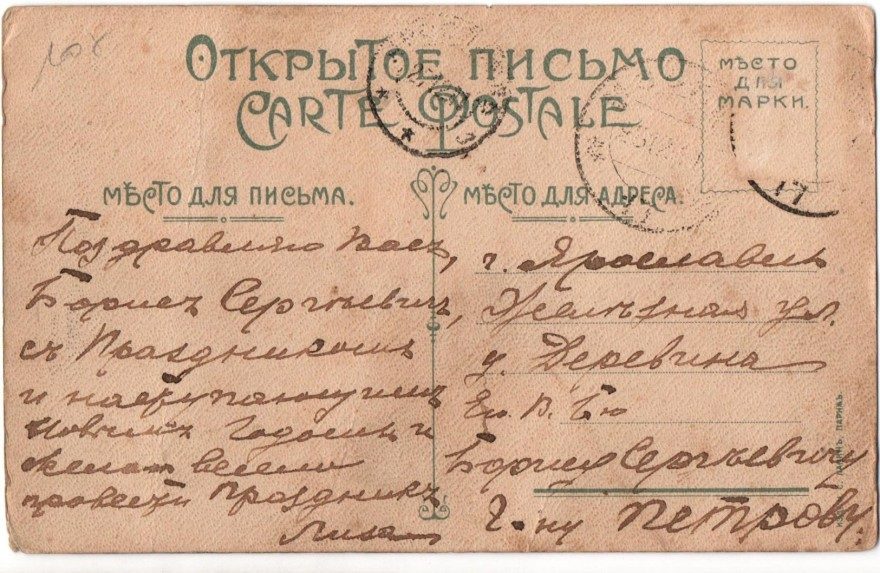 Открытое письмо
Carte Postale
Мѣсто
для
марки.
Мѣсто для письма.
Мѣсто для адреса.
Поздравляю Васъ,
Борисъ Сергѣевичъ,
съ Праздникомъ
и наступающимъ
Новымъ Годомъ и
желаю весело
провести праздникъ
Лиза
г. Ярославль
ул.
д. Деревина
Его В. Бю
Борису Сергѣевичу
Г-ну Петрову.
17